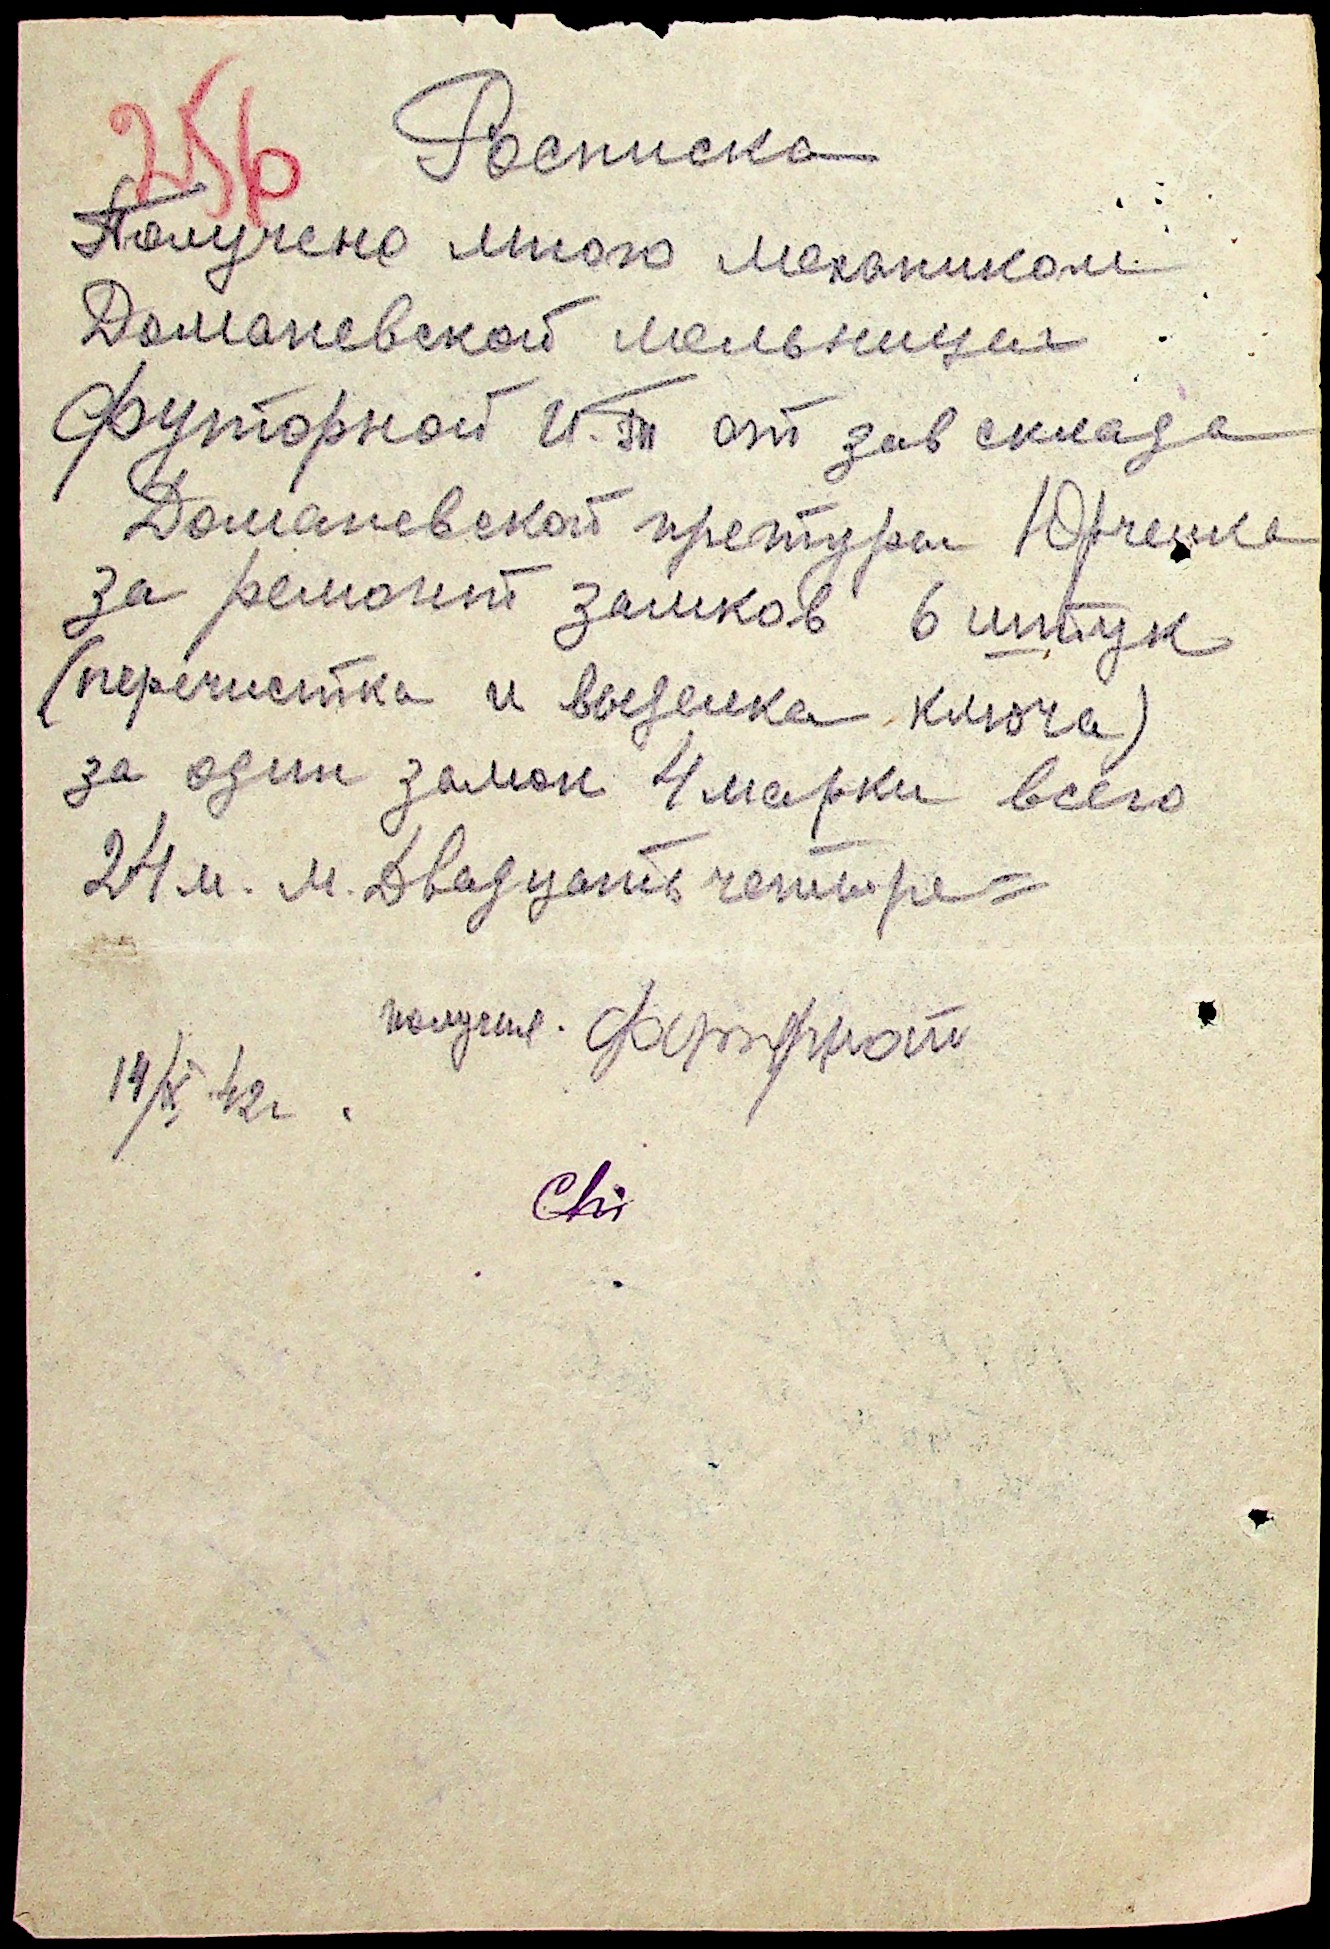 256
Росписка
Получено мною механиком
Доманевской мельницы
Футорной И.Т от зав склада
Доманевской претуры Юрченка
за ремонт замков 6 штук
(перечистка и выделка ключа)
за один замок 4 марки всего
24 м. м. Двадцать четыре =
получил. Футорной
14/X 42г.